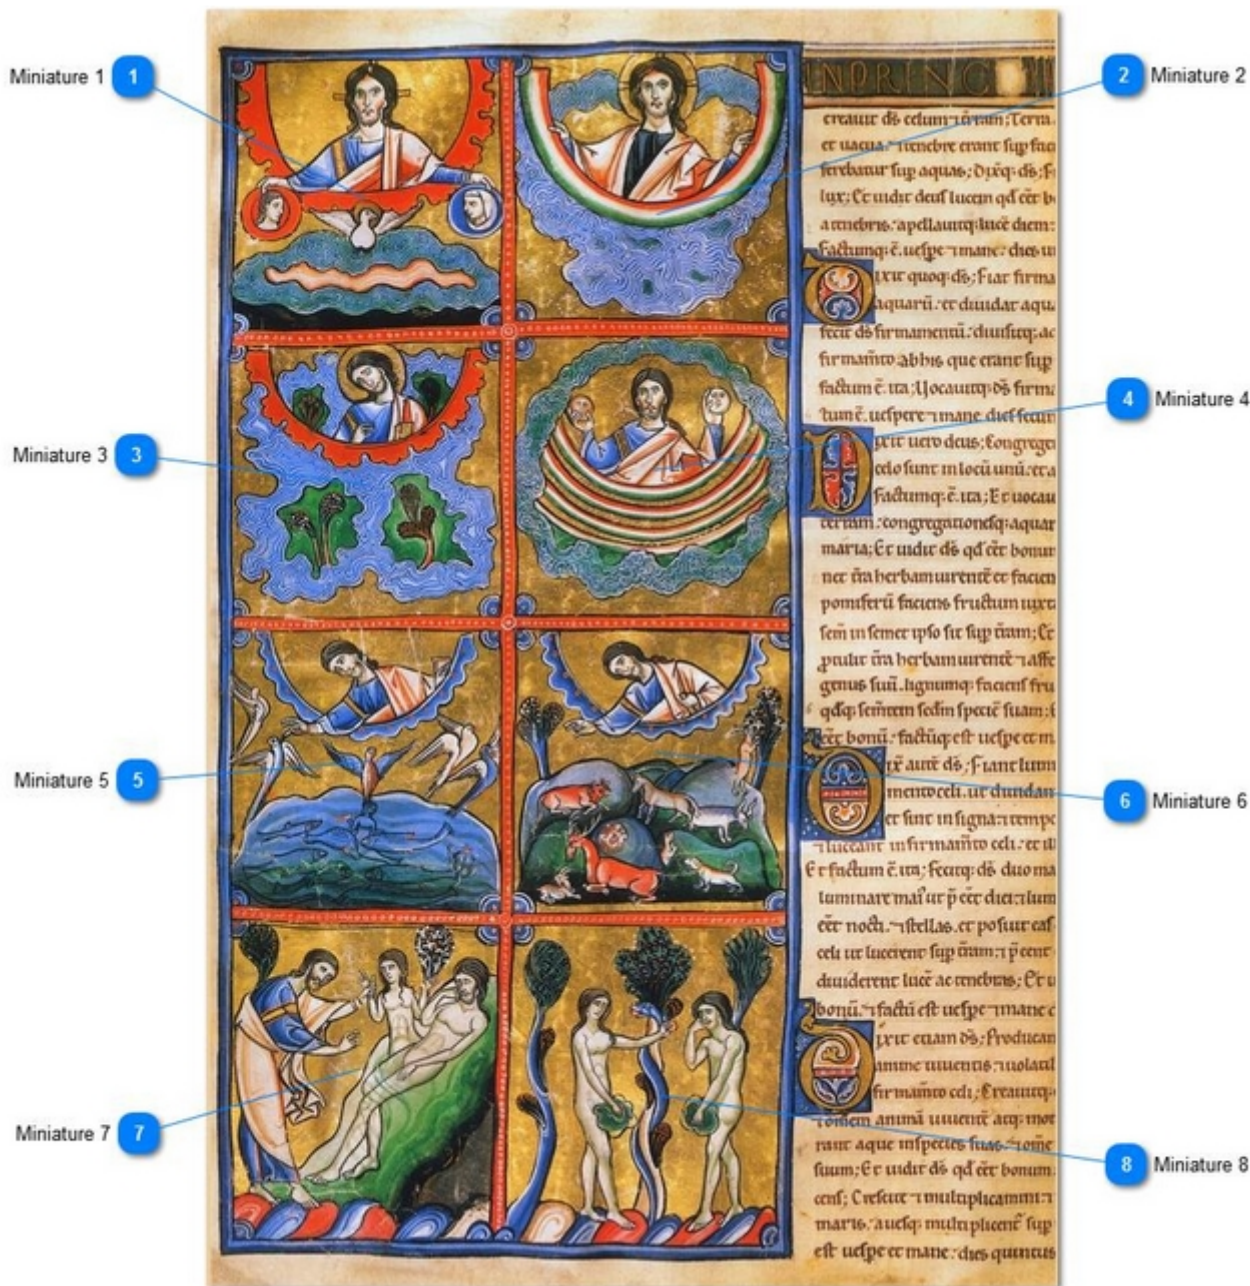 Miniature 1 1
2 Miniature 2
Miniature 3 3
4 Miniature 4
Miniature 5 5
6 Miniature 6
Miniature 7 7
8 Miniature 8
INPRINC
creauit d̄s celum ⁊ t̄ram; Terra
et uacua. ⁊ tenebre erant sup̲ faci
ferebatur sup̲ aquas; Dixq; d̄s; F
lux; Et uidit deus lucem qd̄ eēt b
a tenebris. apellauitq; lucē diem
Factumq; ē. uesp̲e ⁊ mane. dies u
Dixit quoq; d̄s; Fiat firma
aquarū. et diuidat aqu
fecit d̄s firmamentū. diuisitq; ac
firmam̄to. ab his que erant sup̲
factum ē ita; Uocauitq; d̄s firma
tum ē. uespere ⁊ mane dies secun
Dixit uero deus; Congregen
celo sunt in locū unū. et a
Factumq; ē. ita; Et uocau
terram. congregationesq; aquar
maria; Et uidit d̄s qd̄ eēt bonum
net t̄ra herbam uirentē et facien
pomiferū faciens fructum iuxta
sem̄ in semet ipso sit sup̲ t̄ram; Et
p̲tulit t̄ra herbam uirentē ⁊ affe
genus suū. lignumq; faciens fru
sem̄tem sedm̄ speciē suam;
eēt bonū. factūq; est uesp̲e et m
Dix̄ autē d̄s; Fiant lum
mento celi. ut diuidan
et sint in signa ⁊ temp
⁊ luceant in firmam̄to celi. et ill
Et factum ē. ita; Fecitq; d̄s duo ma
luminare mai' ut p̄ eēt diei. ⁊ lum
eēt nocti. ⁊ stellas. et posuit eas
celi ut lucerent sup̲ t̄ram. ⁊ p̄ eent
diuiderent lucē ac tenebras; Et u
bonū. ⁊ factū est uesp̲e ⁊ mane
Dixit etiam d̄s; Producan
anime uiuentis ⁊ uolatil
firmam̄to celi; Creauitq;
animā uiuentē atq; mot
rant aque in species suas. ⁊ om̄e
suum; Et uidit d̄s qd̄ eēt bonum.
cens; Crescite ⁊ multiplicamini. ⁊
maris. auesq; multiplicent̄ sup̲
est uesp̲e et mane. dies quintus